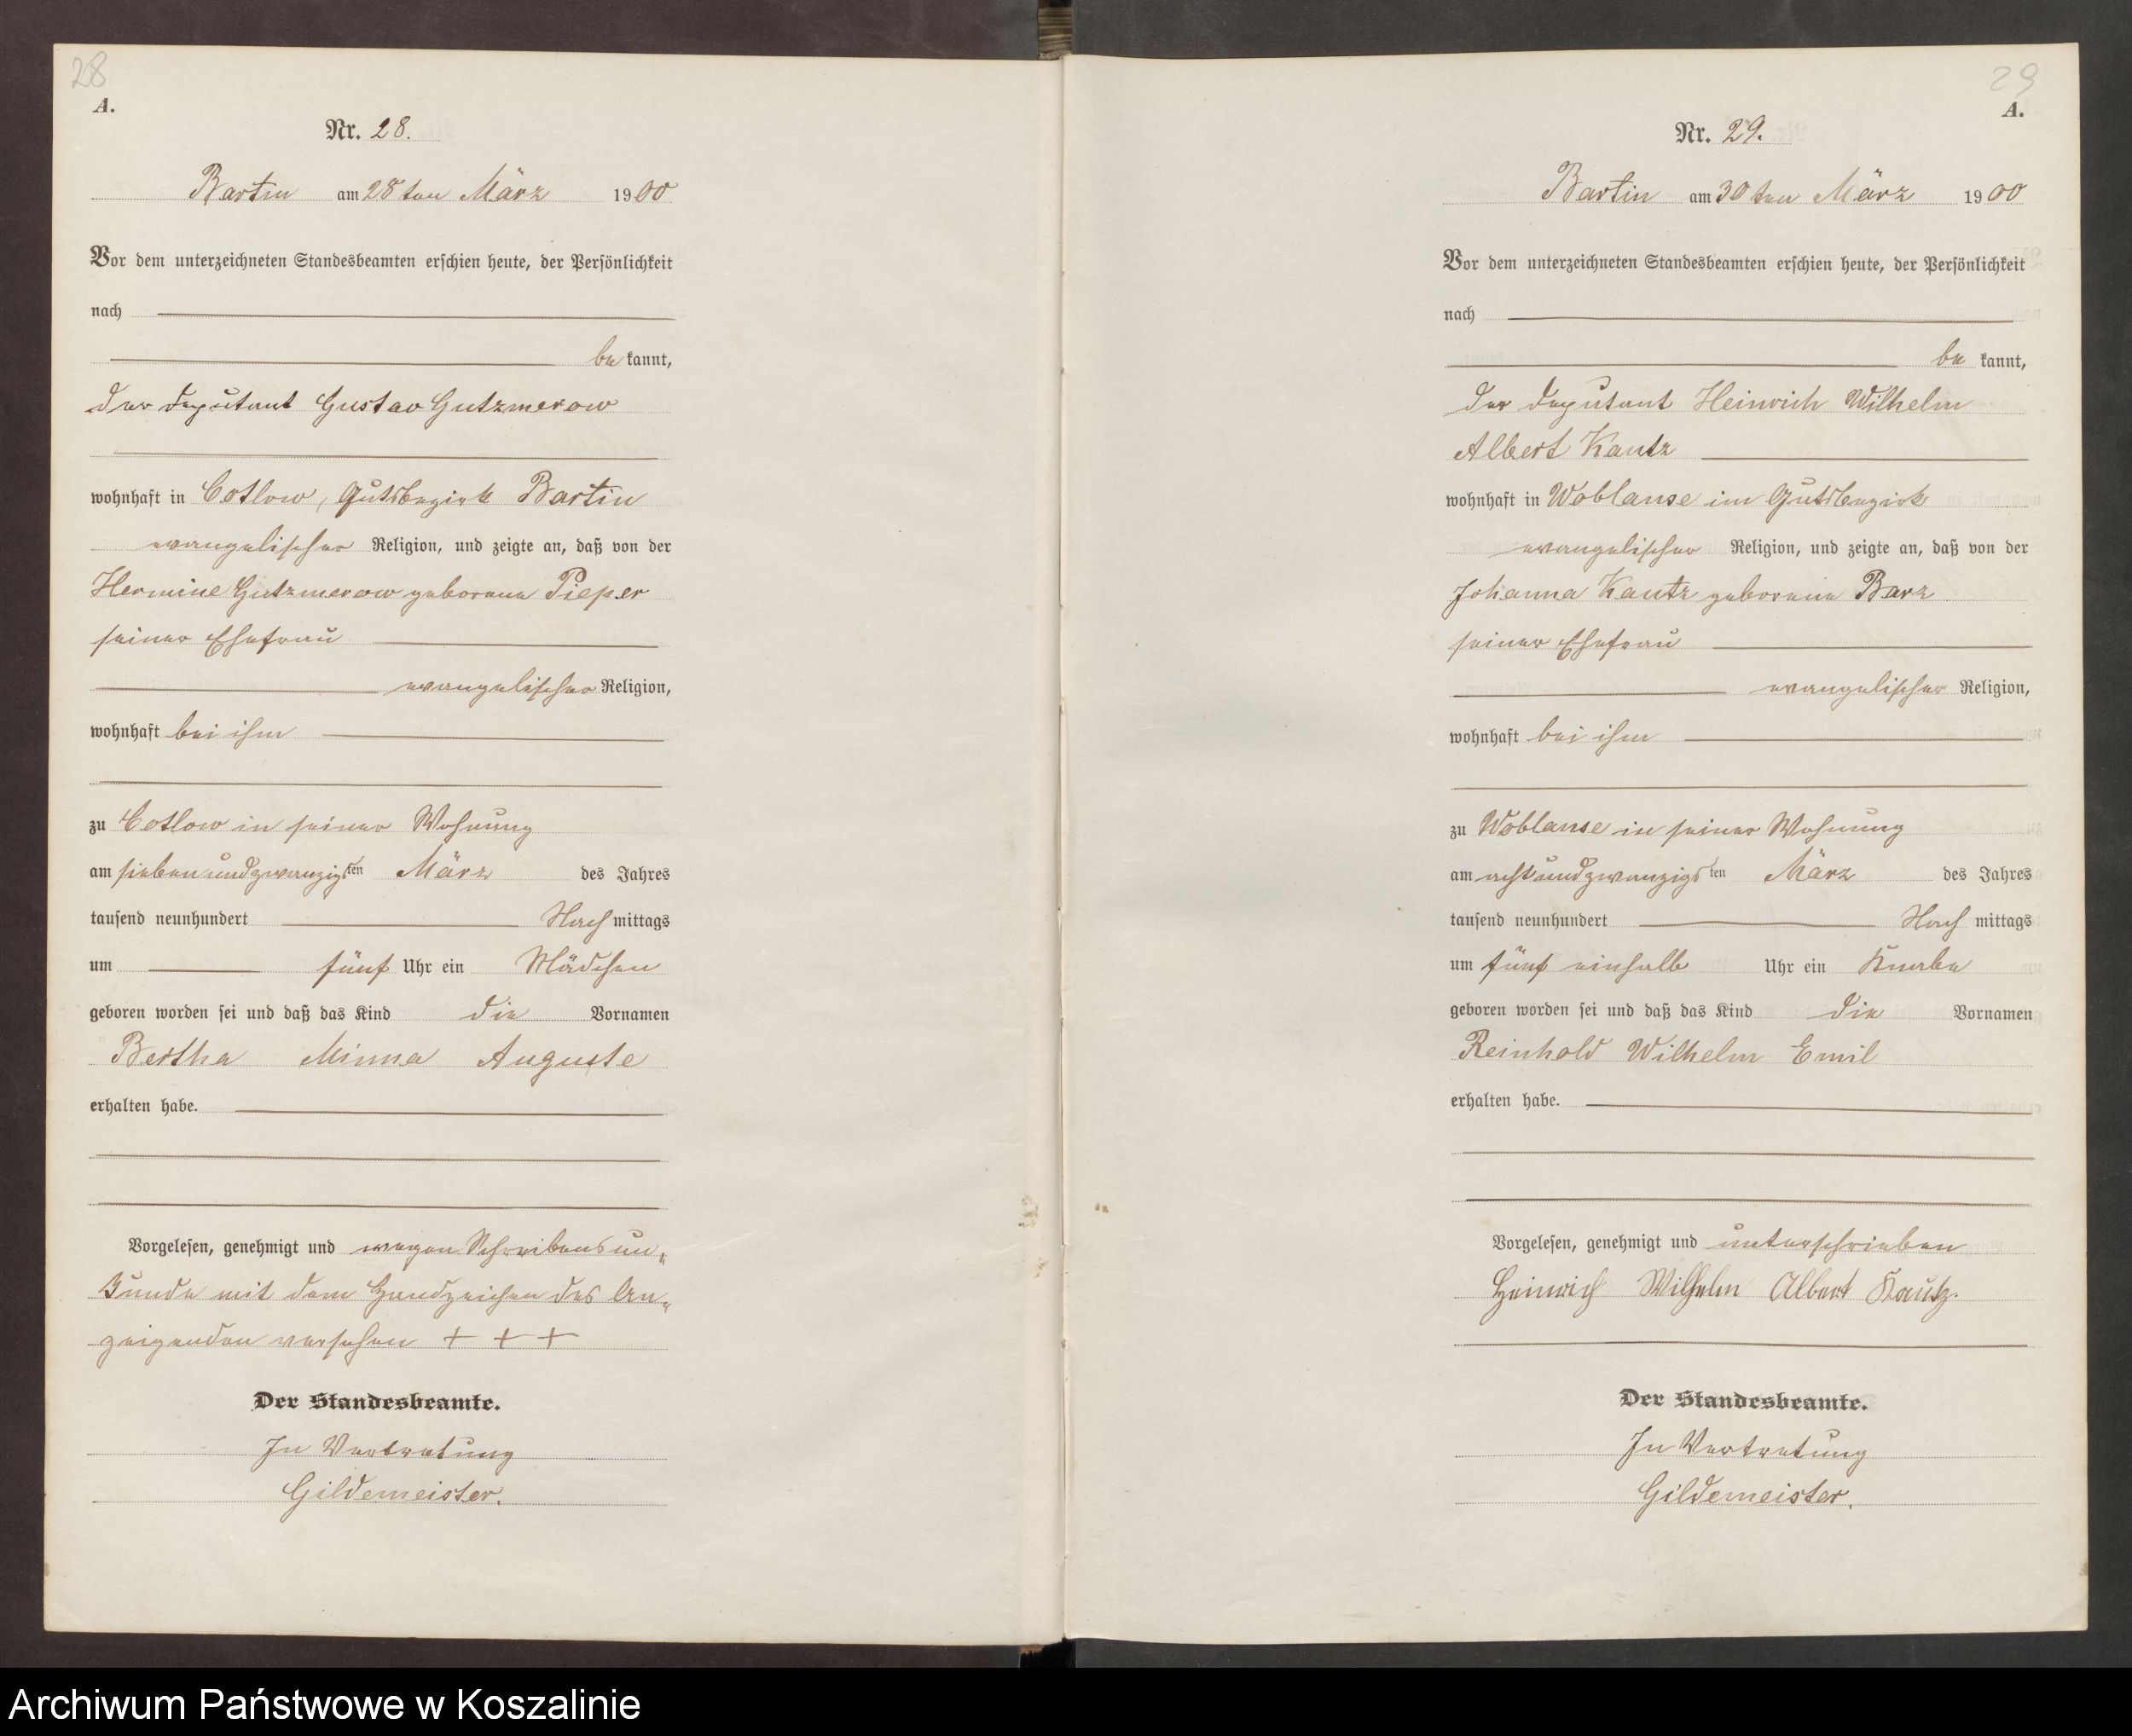 28
A.
Nr. 28.
Bartin am 28ten März 1900
Vor dem unterzeichneten Standesbeamten erschien heute, der Persönlichkeit
nach
be kannt,
der Deputant Gustav Gutzmerow
wohnhaft in Cotlow, Gutsbezirk Bartin
evangelischer Religion, und zeigte an, daß von der
Hermine Gutzmerow geborene Pieper
seiner Ehefrau
evangelischer Religion,
wohnhaft bei ihm
zu Cotlow in seiner Wohnung
am siebenundzwanzigsten März des Jahres
tausend neunhundert Nach mittags
um fünf Uhr ein Mädchen
geboren worden sei und daß das Kind die Vornamen
Bertha Minna Auguste
erhalten habe.
Vorgelesen, genehmigt und wegen Schreibensun-
kunde mit dem Handzeichen des An-
zeigenden versehen + + +
Der Standesbeamte.
In Vertretung
Gildemeister.
29
A.
Nr. 29.
Bartin am 30ten März 1900
Vor dem unterzeichneten Standesbeamten erschien heute, der Persönlichkeit
nach
be kannt,
der Deputant Heinrich Wilhelm
Albert Kautz
wohnhaft in Woblanse im Gutsbezirk
evangelischer Religion, und zeigte an, daß von der
Johanna Kautz geborene Barz
seiner Ehefrau
evangelischer Religion,
wohnhaft bei ihm
zu Woblanse in seiner Wohnung
am achtundzwanzigsten März des Jahres
tausend neunhundert Nach mittags
um fünf einhalb Uhr ein Knabe
geboren worden sei und daß das Kind die Vornamen
Reinhold Wilhelm Emil
erhalten habe.
Vorgelesen, genehmigt und unterschrieben
Heinrich Wilhelm Albert Kautz.
Der Standesbeamte.
In Vertretung
Gildemeister.
Archiwum Państwowe w Koszalinie